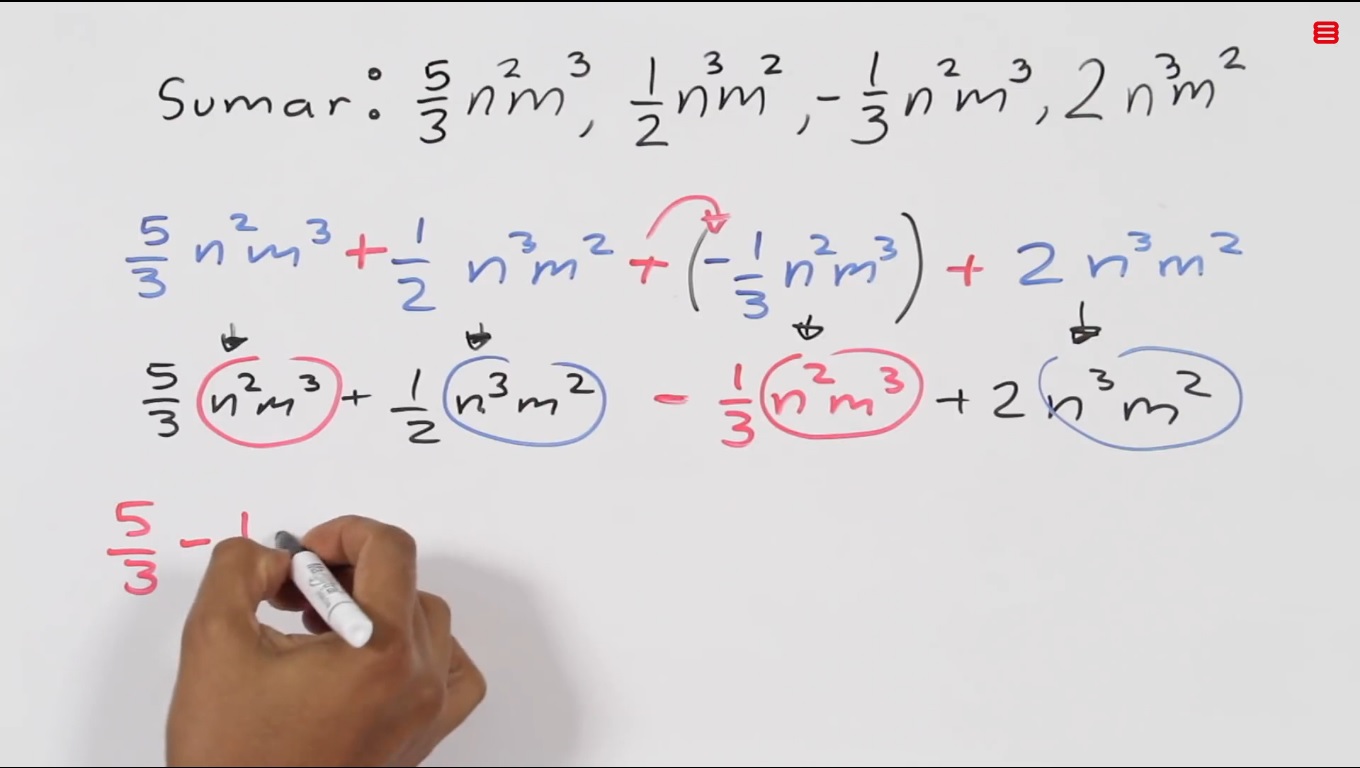 Sumar: 5/3 n²m³, 1/2 n³m², - 1/3 n²m³, 2n³m²
5/3 n²m³ + 1/2 n³m² + (- 1/3 n²m³) + 2n³m²
5/3 n²m³ + 1/2 n³m² - 1/3 n²m³ + 2n³m²
5/3 - 1